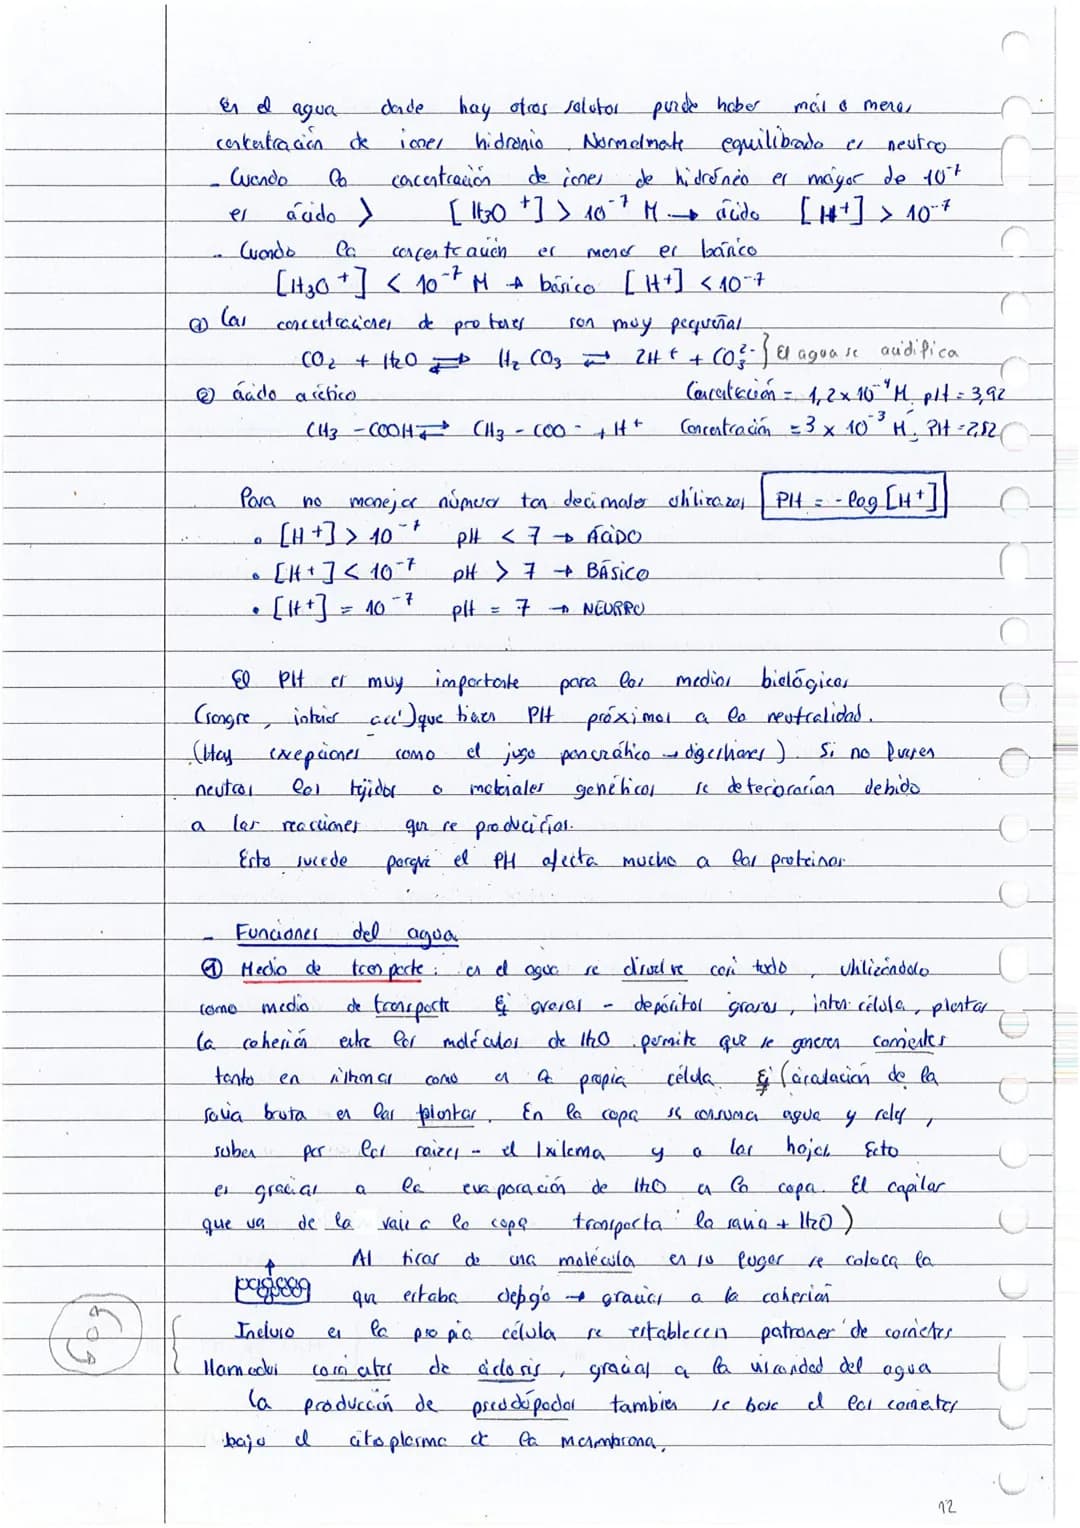 En el agua donde hay otros solutos puede haber más o menos
concentración de iones hidronio. Normalmente equilibrado es neutro
- Cuando la concentración de iones de hidróneo es mayor de 10⁻⁷
es ácido > [H₃O⁺] > 10⁻⁷ M → ácido [H⁺] > 10⁻⁷
- Cuando la concentración es menor es básico
[H₃O⁺] < 10⁻⁷ M → básico [H⁺] < 10⁻⁷
① Las concentraciones de protones son muy pequeñas
CO₂ + H₂O ⇌ H₂CO₃ ⇌ 2H⁺ + CO₃²⁻ } El agua se acidifica
② ácido acético Concentración = 1,2 x 10⁻⁴ M pH = 3,92
CH₃-COOH ⇌ CH₃-COO⁻ + H⁺ Concentración = 3 x 10⁻³ M. PH = 2,52
Para no manejar números tan decimales utilizazos PH = - log [H⁺]
• [H⁺] > 10⁻⁷ pH < 7 → ÁCIDO
• [H⁺] < 10⁻⁷ pH > 7 → BÁSICO
• [H⁺] = 10⁻⁷ pH = 7 → NEURRO
El PH es muy importante para los medios biológicos
(sangre, interior cel) que tienen PH próximos a la neutralidad.
(Hay excepciones como el jugo pancreático → digestiones). Si no fuesen
neutros los tejidos o materiales genéticos se deteriorarían debido
a las reacciones que se producirías.
Esto sucede porque el PH afecta mucho a las proteinas
- Funciones del agua
① Medio de transporte: en el agua se disuelve casi todo, utilizándolo
como medio de transporte Ej grasas - depósitos grasos, inter. célula, plantas
La cohesión entre las moléculas de H₂O permite que se generen corrientes
tanto en sistemas como en la propia célula. Ej (circulación de la
savia bruta en las plantas. En la copa se consuma agua y sales,
suben por las raizes - el Ixilema y a las hojas Esto
es gracias a la evaporación de H₂O en la copa. El capilar
que va de la raiz a la copa transporta la savia + H₂O)
Al tirar de una molécula en su lugar se coloca la
que estaba debajo → gracias a la cohesión
Incluso en la propia célula se establecen patrones de corrientes
llamados corrientes de ciclosis, gracias a la viscosidad del agua
La producción de pseudópodos tambien se base el las corrientes
bajo el citoplasma de la membrana.
12